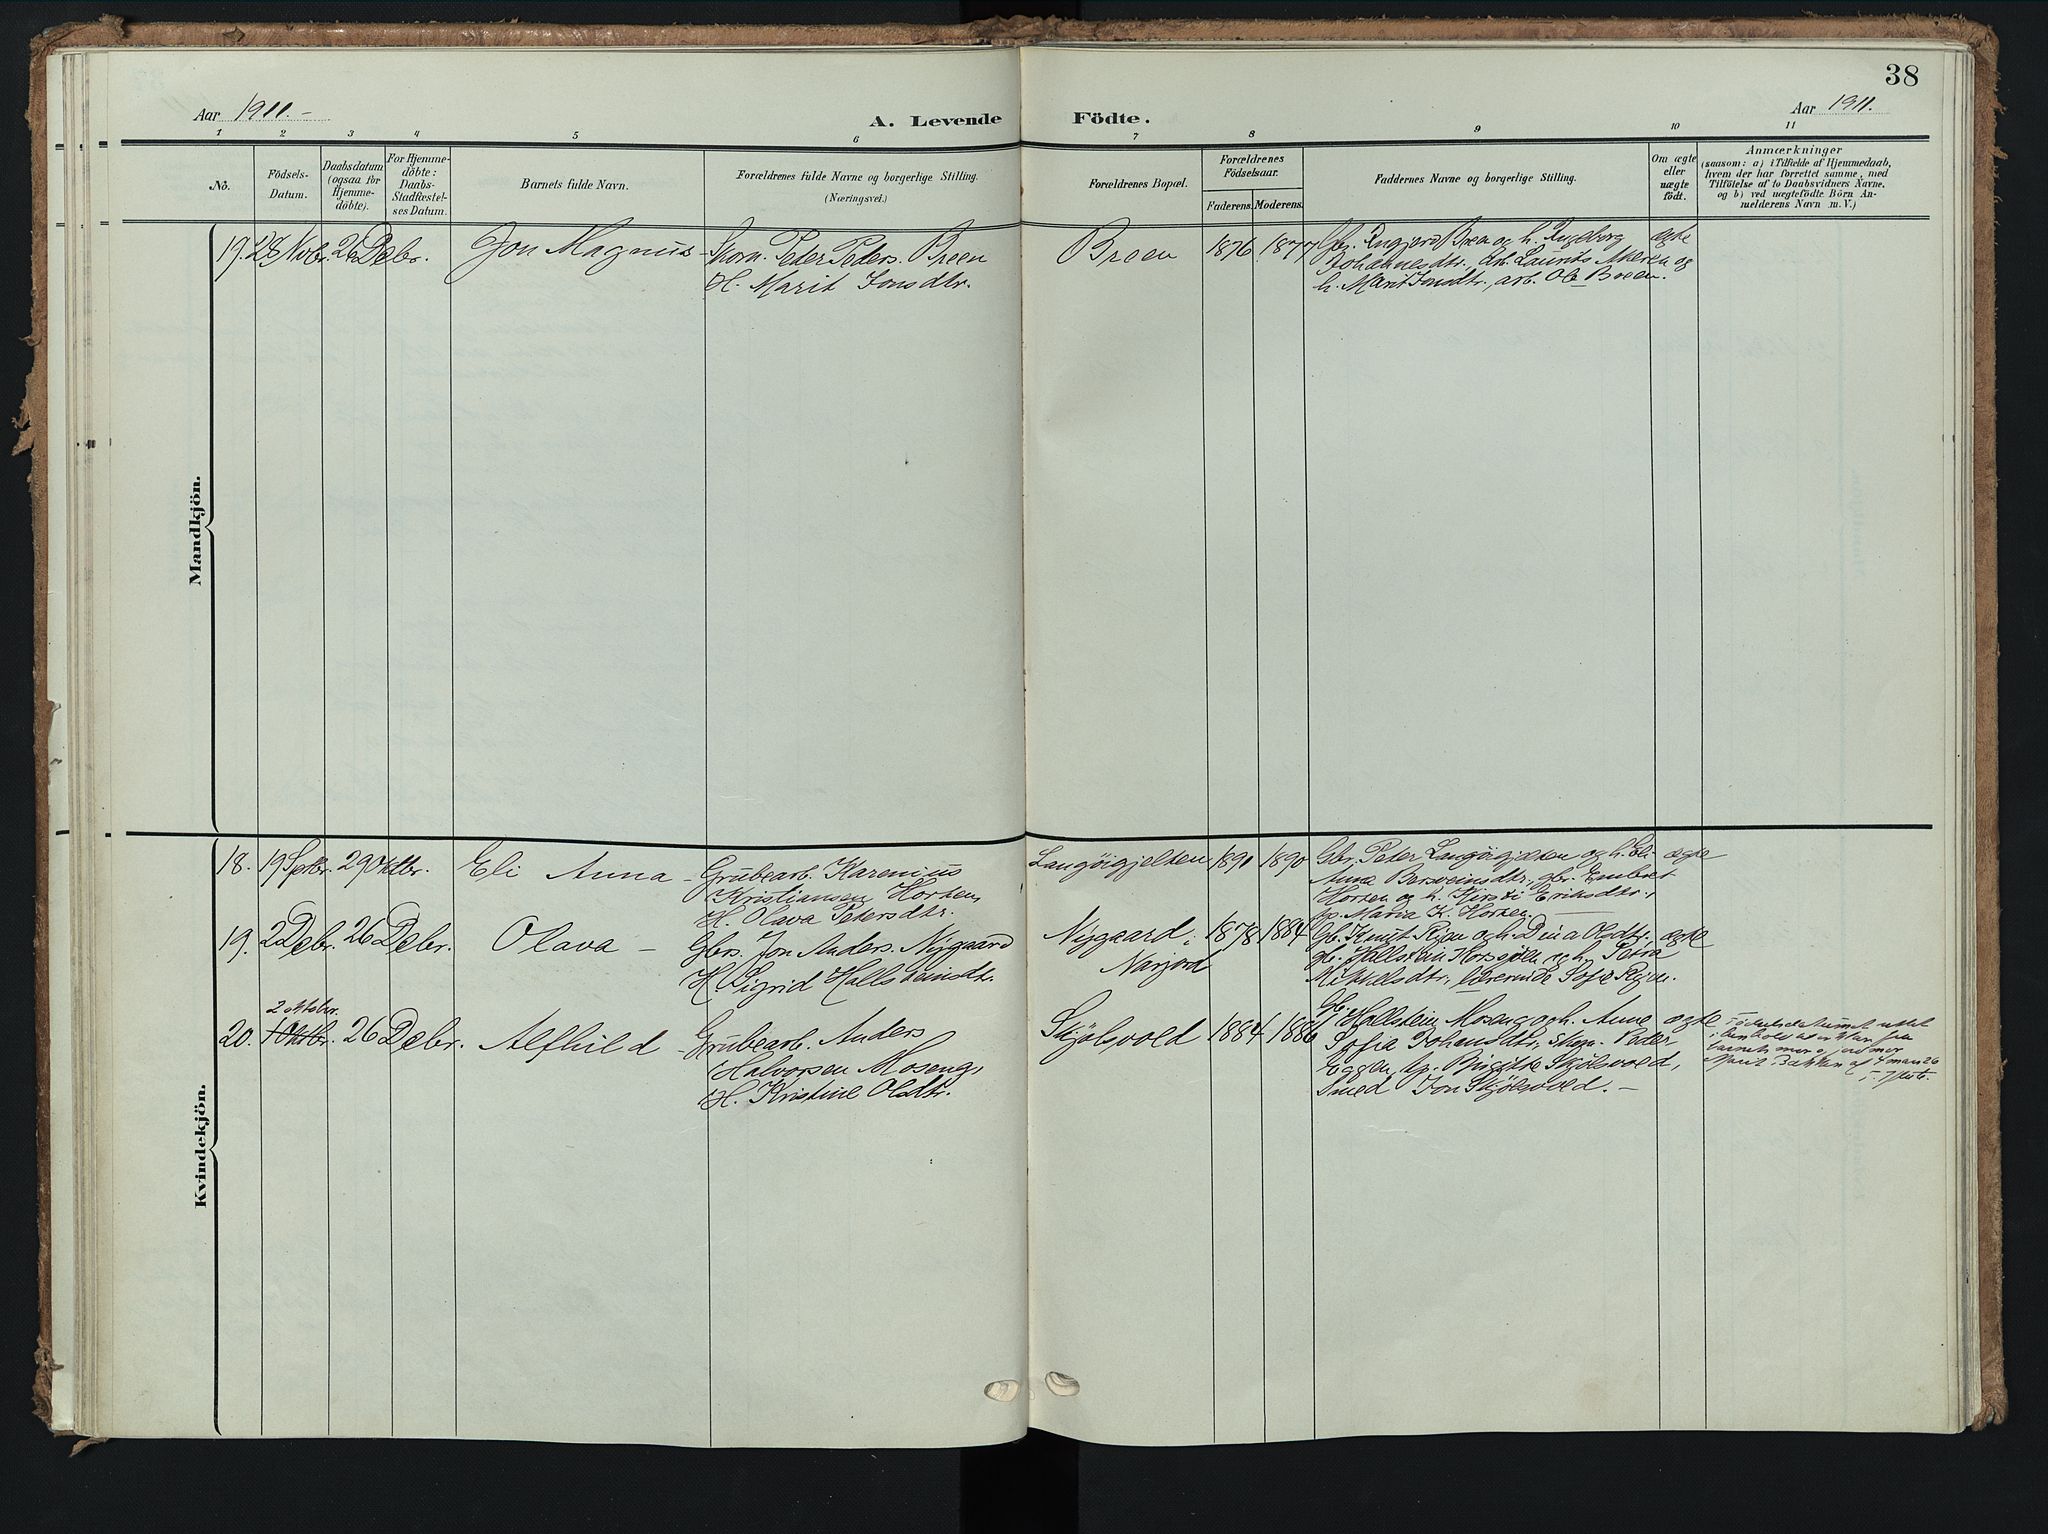 38
Aar 1911.
A. Levende Födte.
Aar 1911.
1 2 3 4 5 6 7 8 9 10 11
No.
Födsels-
Datum.
Daabsdatum
(ogsaa for
Hjemme-
döbte).
For Hjemme-
döbte:
Daabs-
Stadfæstel-
ses Datum.
Barnets fulde Navn.
Forældrenes fulde Navne og borgerlige Stilling.
(Næringsvei.)
Forældrenes Bopæl.
Forældrenes
Födselsaar.
Faderens. Moderens.
Faddernes Navne og borgerlige Stilling.
Om ægte
eller
uægte
födt.
Anmærkninger
(saasom: a) i Tilfælde af Hjemmedaab,
hvem der har forrettet samme, med
Tilföielse af to Daabsvidners Navne,
og b) ved uægtefödte Börn An-
melderens Navn m. V.)
Mandkjön.
19. 28 Novbr. 26 Debr. Jon Magnus Skom. Peter Peders. Breen
H. Marit Jonsdtr.
Breen 1876 1877
Gbr. Ingjard Breen og h. Ingeborg
Johannesdtr., arb. Laurits Moren og
h. Marit Jonsdtr., arb. Ole Breen.
ægte
Kvindekjön.
18. 19 Septbr. 29 Oktbr. Eli Anna - Grubearb. Karenius
Kristiansen Horten,
H. Olava Petersdtr.
Langöigjelten 1891 1890
Gbr. Peter Langöigjelten og h. Eli
Anna Bersveinsdtr., gbr. Embret
Horten og h. Kjersti Eriksdtr.,
tp. Maria K. Horten.
ægte
19. 2 Debr. 26 Debr. Olava - Gbrs. Jon Anders. Nygaard
H. Sigrid Hallsteinsdtr.
Nygaard i
Narjord 1878 1884
Gb. Knut Rijen og h. Dina Olsdtr.,
gb. Hallstein Horsjöen og h. Petra
Mikkelsdtr., lærerinde Sofie Rijen.
ægte
2 oktober
20. 1 Oktbr. 26 Debr. Alfhild - Grubearb. Anders
Halvorsen Moseng,
H. Kristine Olsdtr.
Skjölsvold 1884 1886
Gb. Hallstein Moseng og h. Anne
Sofia Johansdtr., Skom. Peder
Eggen, tp. Birgitte Skjölsvold,
Smed Jon Skjölsvold. -
ægte
Födselsdatumet rettet
i henhold til
Marit Bakken af 4 mars 26